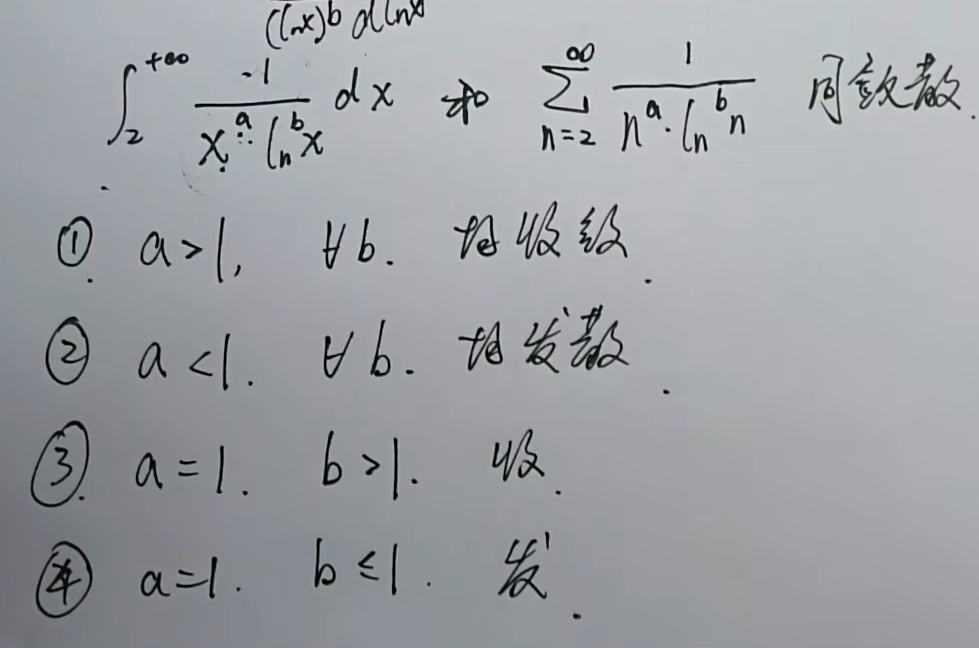 (lnx)^b dlnx
∫_2^{+∞} \frac{1}{x^a · ln^b x} dx 和 ∑_{n=2}^{∞} \frac{1}{n^a · ln^b n} 同敛散.
① a>1, ∀b. 均收敛.
② a<1. ∀b. 均发散.
③ a=1. b>1. 收.
④ a=1. b≤1. 发.